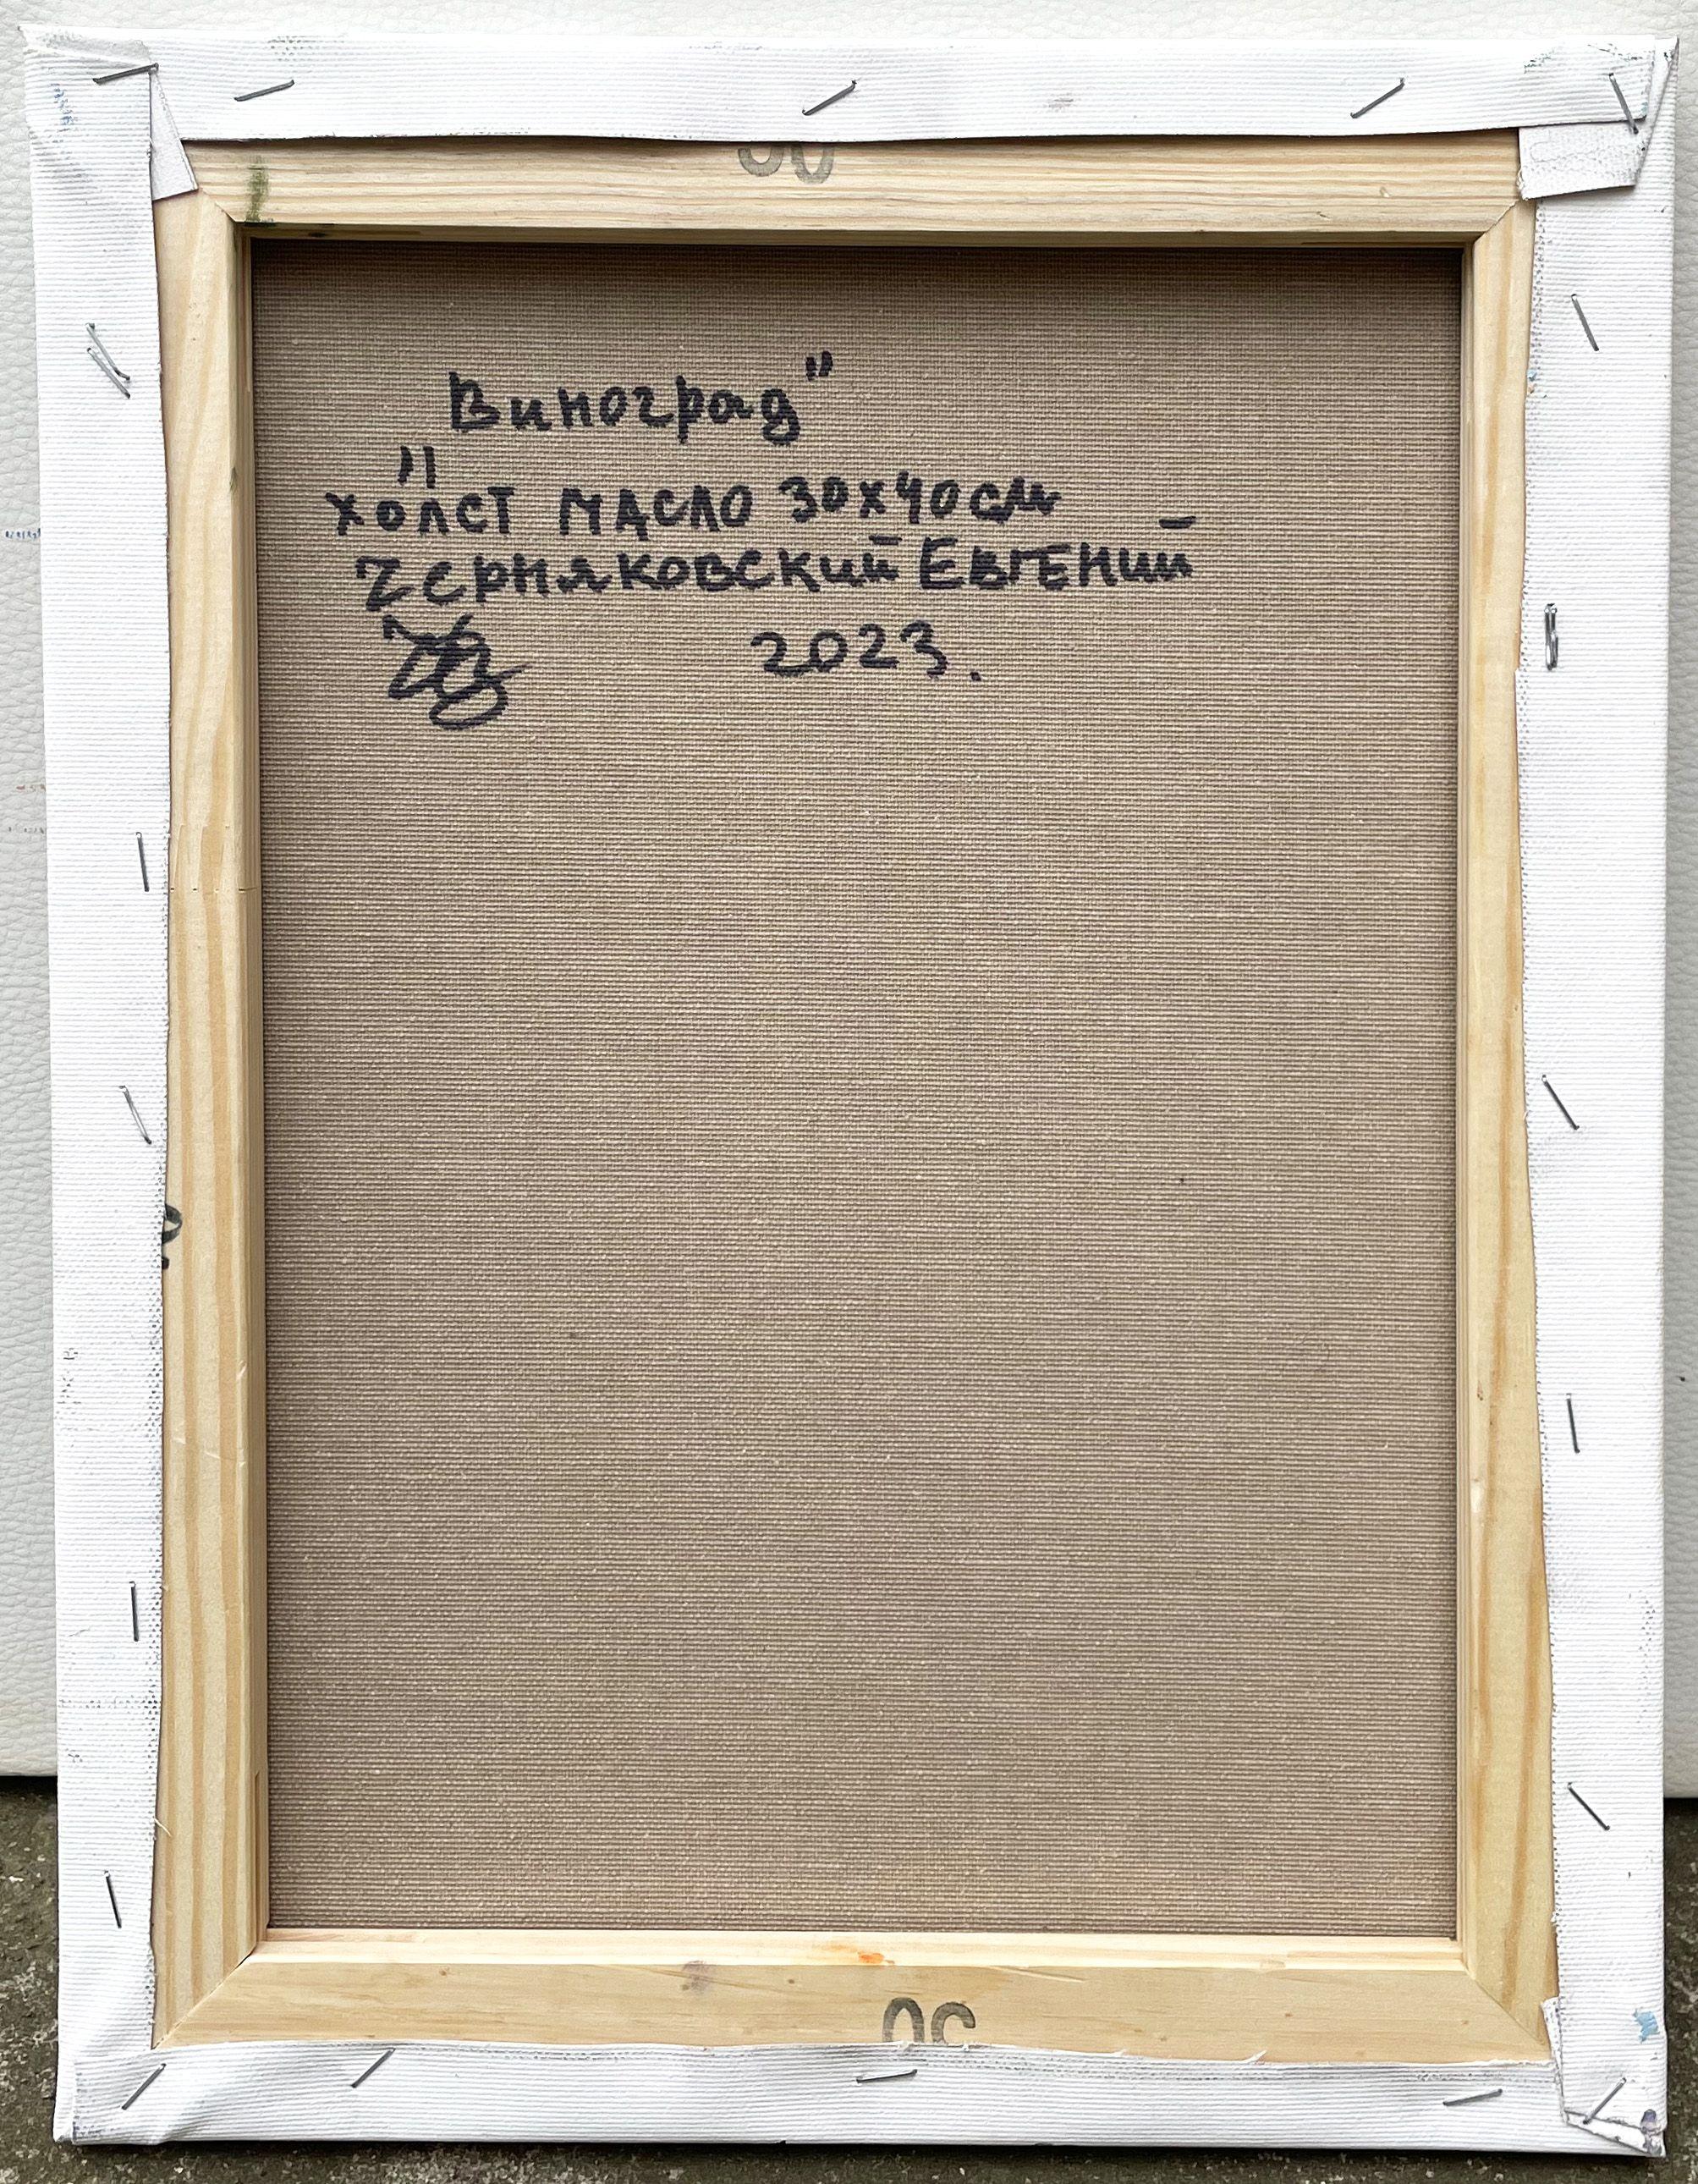 "Виноград"
холст масло 30х40см
Черняковский Евгений
2023.